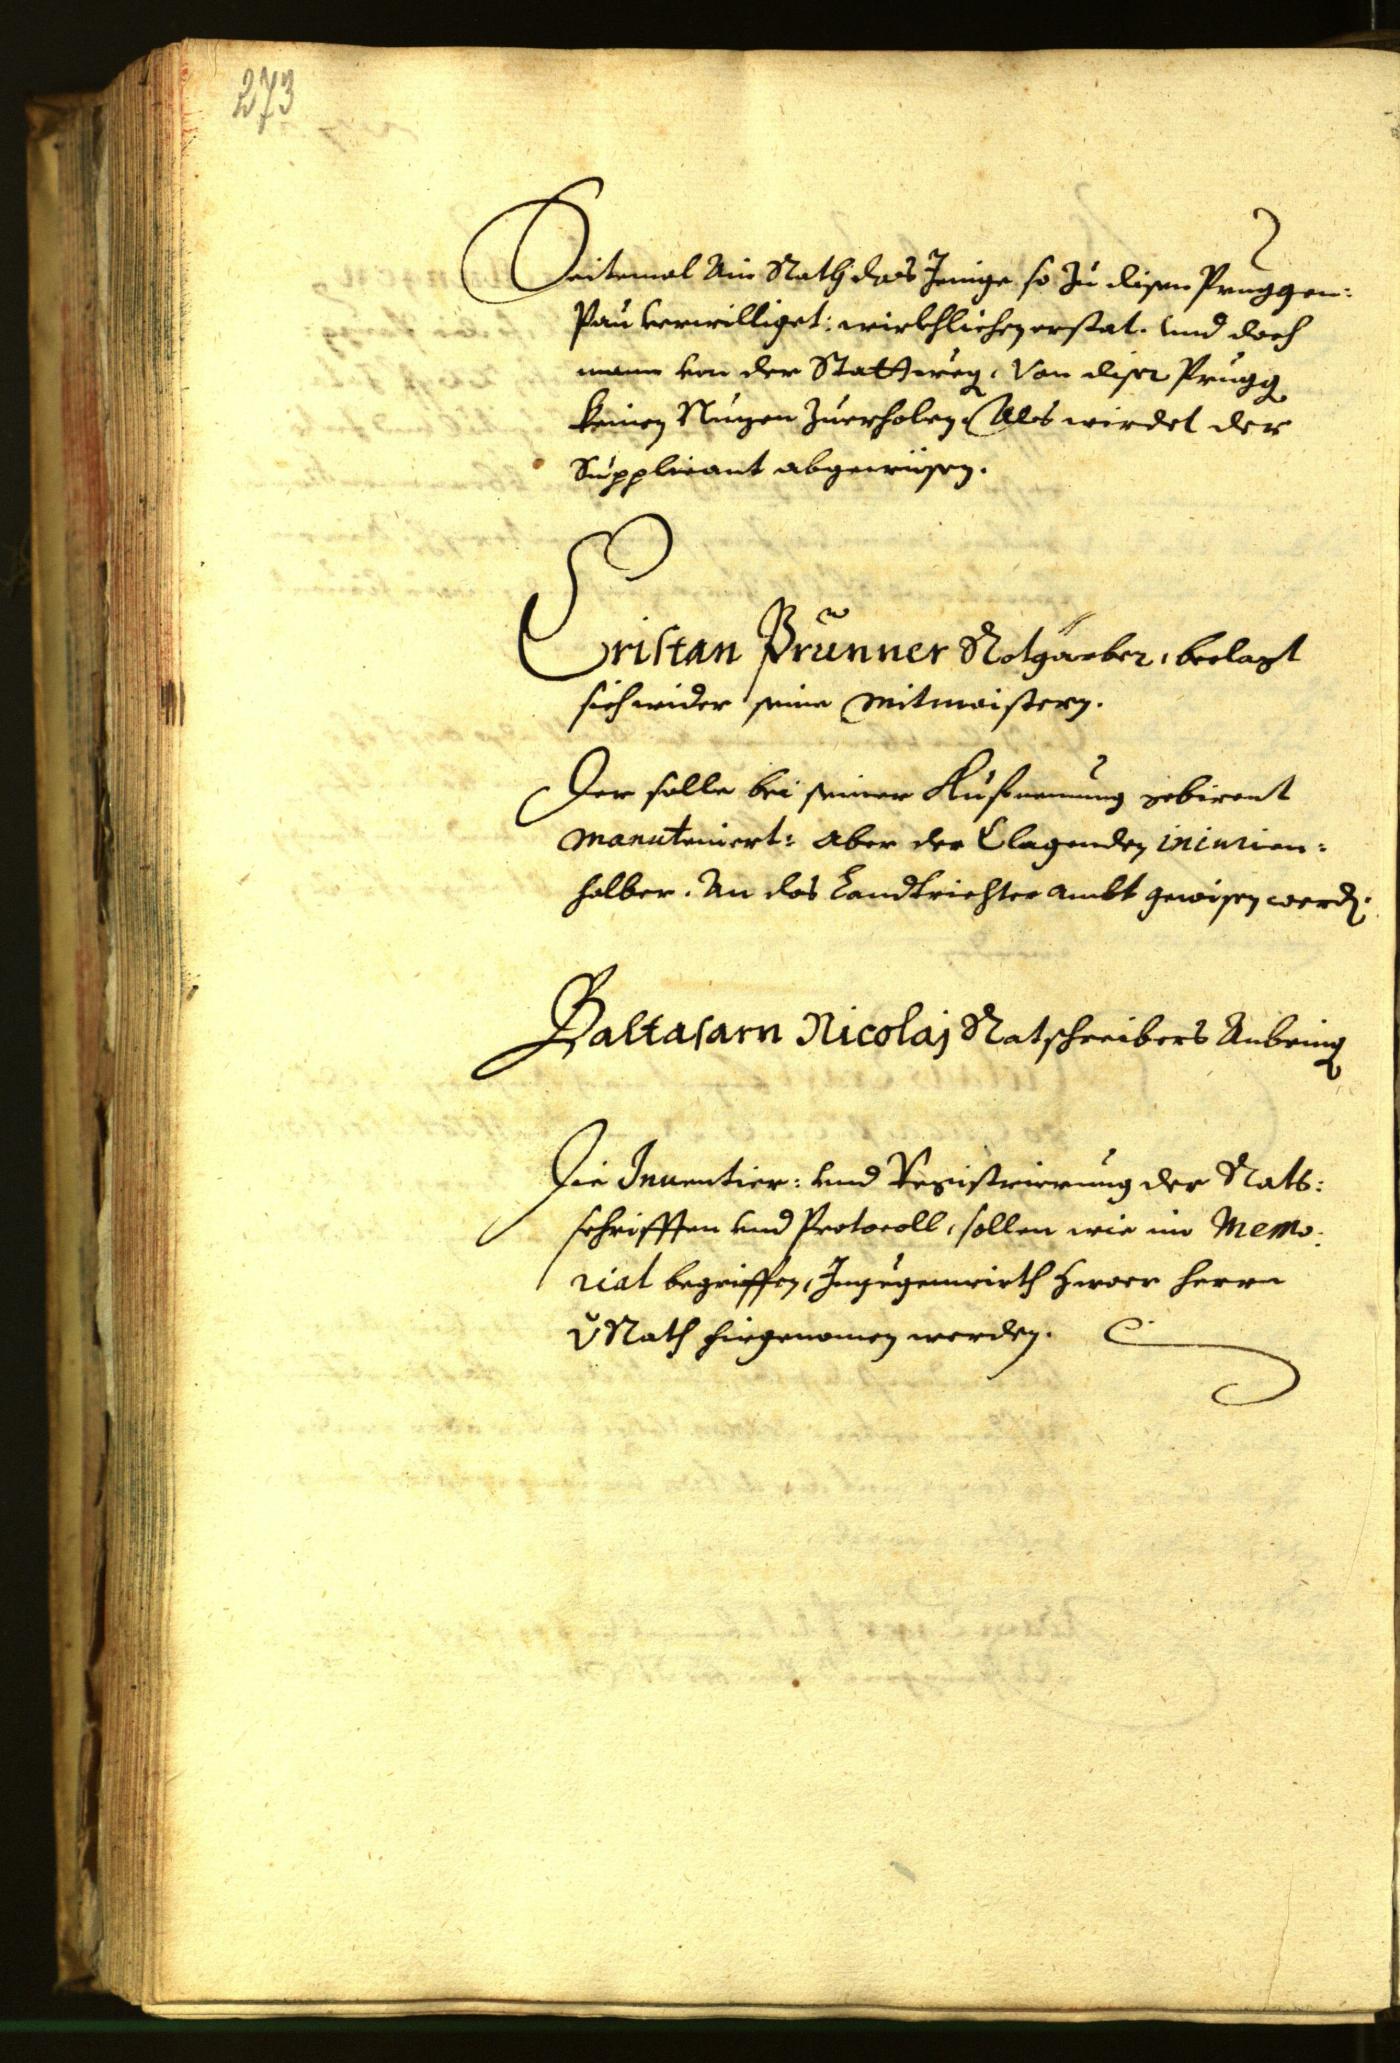 273
Seitemal Ain Rath das Jenige so zu disen Pruggen:
Pau verwilliget: wirkhlichen erstat. Und doch
mann von der Statt weg, Von diser Prugg
keinen Nuzen zuerholen, Als wirdet der
Supplicant abgewisen.
Cristan Prunner Rotgärber, beclagt
sich wider seine Mitmaistern.
Der solle bei seiner Außnemung gebirent
manuteniert: aber der Clagenden iniurien:
halber. An das Landtrichter ambt gewisen werd.
Baltasarn Nicolaj Ratschreibers Anbring
Die Inuentier: und Registrierung der Rats:
schrifften und Protocoll, sollen wie im Memo:
rial begriffen, In gegenwirth zwoer herrn
v Rath firgenomen werden.